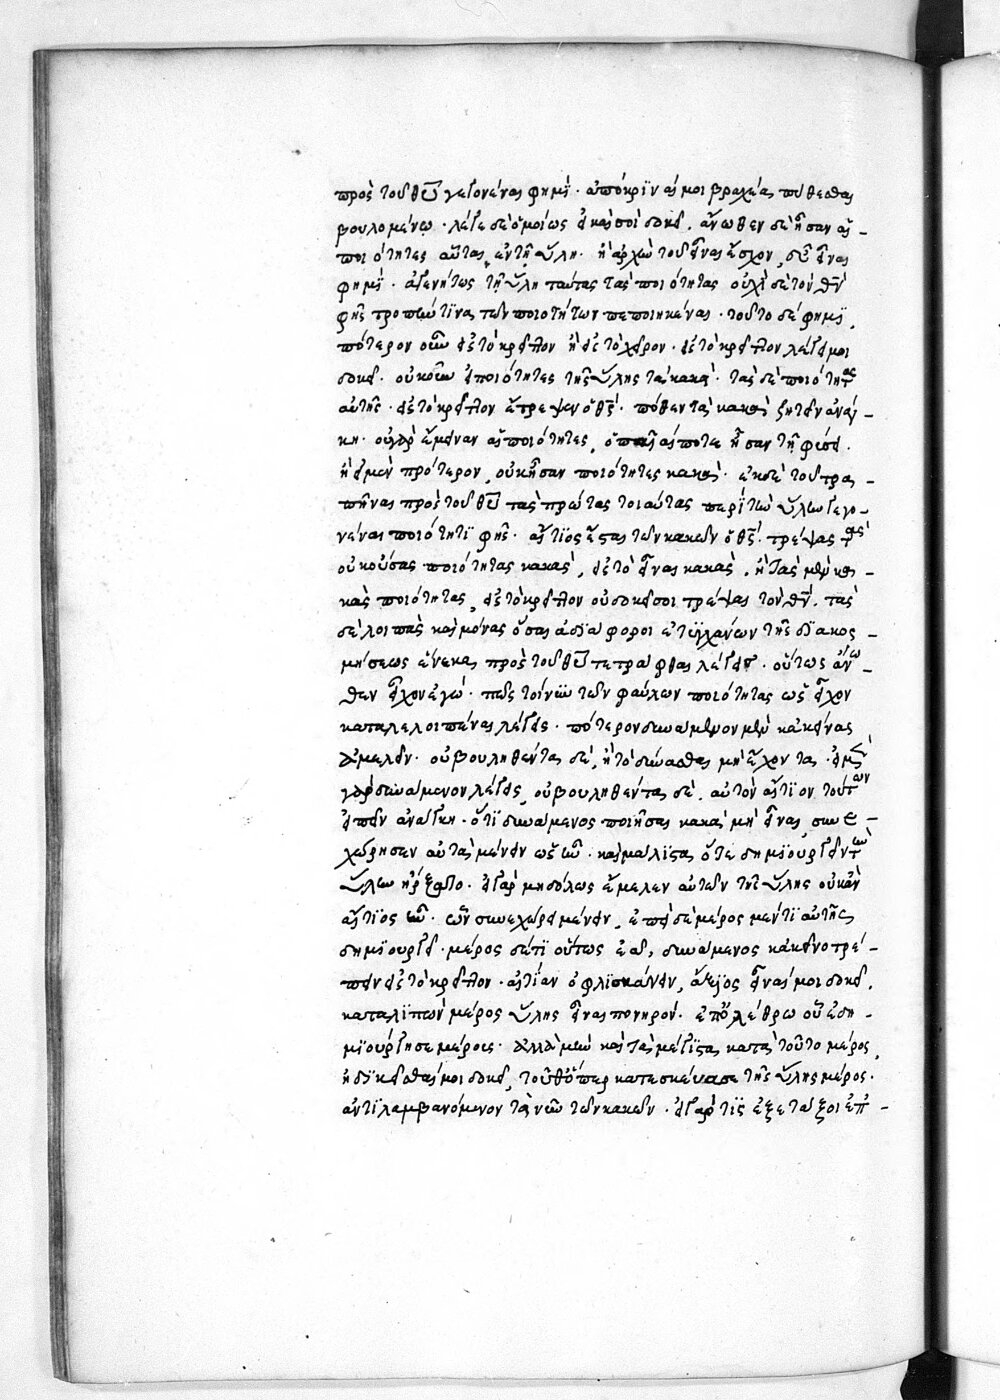 πρὸς τοῦ θῦ γεγονέναι φημί · ἀπόκριναί μοι βραχέα πυθέσθαι
βουλομένῳ · λέγε δὲ ὁμοίως εἰ καὶ σοὶ δοκεῖ . ἄνωθεν δὲ ἦσαν αἱ
ποιότητες αὗται ἐν τῇ ὕλῃ · ἢ ἀρχὴν τοῦ εἶναι ἔσχον , συνεῖναι
φημί · ἀγενήτως τῇ ὕλῃ ταύτας τὰς ποιότητας οὐχὶ δὲ τὸν θν
φῂς τροπήν τινα τῶν ποιοτήτων πεποιηκέναι · τοῦτο δέ φημι ,
πότερον οὖν εἰς τὸ κρεῖττον ἢ εἰς τὸ χεῖρον · εἰς τὸ κρεῖττον λέγειν μοι
δοκεῖ · οὐκοῦν εἰ ποιότητες τῆς ὕλης τὰ κακά · τὰς δὲ ποιότητας
αὐτῆς · εἰς τὸ κρεῖττον ἔτρεψεν ὁ θς · πόθεν τὰ κακὰ ζητεῖν ἀνάγ-
κη · οὐ γὰρ ἔμειναν αἱ ποιότητες , ὁποῖαί ποτε ἦσαν τῇ φύσει .
ἢ εἰ μὲν πρότερον οὐκ ἦσαν ποιότητες κακαὶ · ἐκ δὲ τοῦ τρα-
πῆναι πρὸς τοῦ θῦ τὰς πρώτας τοιαύτας περὶ τὴν ὕλην γεγο-
νέναι ποιότητι φῂς · αἴτιος ἔσται τῶν κακῶν ὁ θς · τρέψας τὰς
οὐκ οὔσας ποιότητας κακὰς , εἰς τὸ εἶναι κακάς . ἢ τὰς μὲν κα-
κὰς ποιότητας , εἰς τὸ κρεῖττον οὐ δοκεῖ σοι τρέψαι τὸν θν . τὰς
δὲ λοιπὰς καὶ μόνας ὅσαι ἀδιάφοροι ἐτύγχανον τῆς διακοσ-
μήσεως ἕνεκα , πρὸς τοῦ θῦ τετράφθαι λέγεις · οὕτως ἄνω-
θεν εἶχον ἐγώ · πῶς τοίνυν τῶν φαύλων ποιότητας ὡς εἶχον
καταλελοιπέναι λέγεις · πότερον δυνάμενον μὲν κἀκείνας
ἀνελεῖν · οὐ βουληθέντα δέ , ἢ τὸ δύνασθαι μὴ ἔχοντα · εἰ μὲν
γὰρ δυνάμενον λέξεις , οὐ βουληθέντα δέ . αὐτὸν αἴτιον τούτων
εἰπεῖν ἀνάγκη · ὅτι δυνάμενος ποιῆσαι κακὰ μὴ εἶναι , συνε-
χώρησεν αὐτὰ μένειν ὡς ἦν · καὶ μάλιστα ὅτε δημιουργεῖν τὴν
ὕλην ἤρξατο · εἰ γὰρ μηδόλως ἔμελεν αὐτῶν τῆς ὕλης οὐκ ἂν
αἴτιος ἦν · ὧν συνεχώρει μένειν , ἐπεὶ δὲ μέρος μέν τι αὐτῆς
δημιουργεῖ · μέρος δέ τι οὕτως ἐᾷ , δυνάμενος κἀκεῖνο τρέ-
πειν εἰς τὸ κρεῖττον · αἰτίαν ὀφλισκάνειν , ἄξιος εἶναί μοι δοκεῖ .
καταλιπὼν μέρος ὕλης εἶναι πονηρόν · ἐπ' ὀλέθρῳ οὗ ἐδη-
μιούργησε μέρους · ἀλλὰ μὴν καὶ τὰ μέγιστα κατὰ τοῦτο μέρος ,
ἠδικῆσθαί μοι δοκεῖ , τοῦθ' ὅπερ κατεσκεύασε τῆς ὕλης μέρος ·
ἀντιλαμβανόμενον τὰ νῦν τῶν κακῶν · εἰ γάρ τις ἐξετάξοι ἐπ' -